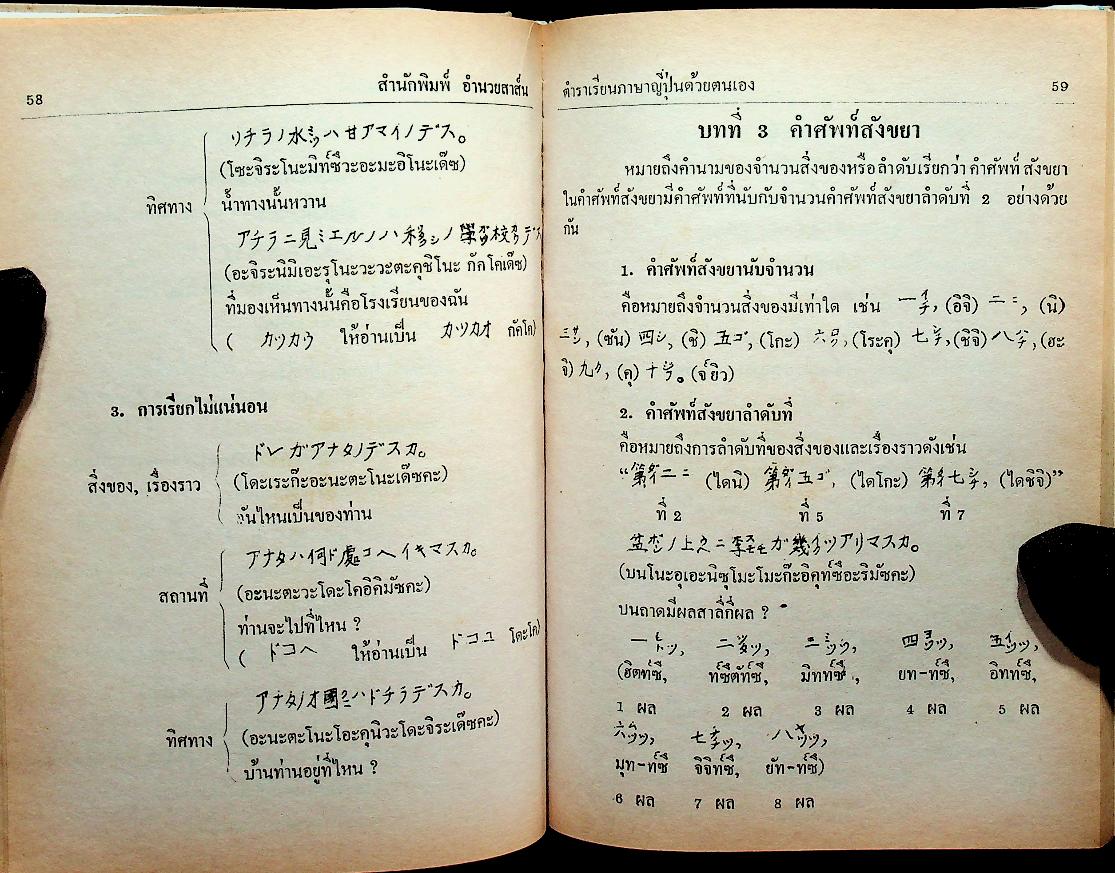 58
สำนักพิมพ์ อำนวยสาส์น
ソチラノ水ミヅハ甘アマイノデス。
(โซะจิระโนะมิท์ซึวะอะมะอิโนะเด๊ซ)
ทิศทาง
น้ำทางนั้นหวาน
アチラニ見ミエルノハ
(อะจิระนิมิเอะรุโนะวะวะตะคุชิโนะ กักโคเด๊ซ)
ที่มองเห็นทางนั้นคือโรงเรียนของฉัน
( カツカウ ให้อ่านเป็น カツカオ กักโค)
3. การเรียกไม่แน่นอน
ドレガアナタノデスカ。
สิ่งของ, เรื่องราว
(โดะเระก๊ะอะนะตะโนะเด๊ซคะ)
อันไหนเป็นของท่าน
アナタハ何ド處コヘイキマスカ。
สถานที่
(อะนะตะวะโดะโคอิคิมัซคะ)
ท่านจะไปที่ไหน ?
( ドコヘ ให้อ่านเป็น ドコユ โดะโค)
アナタノオ國クニハドチラデスカ。
ทิศทาง
(อะนะตะโนะโอะคุนิวะโดะจิระเด๊ซคะ)
บ้านท่านอยู่ที่ไหน ?
ตำราเรียนภาษาญี่ปุ่นด้วยตนเอง
59
บทที่ 3 คำศัพท์สังขยา
หมายถึงคำนามของจำนวนสิ่งของหรือลำดับเรียกว่า คำศัพท์ สังขยา
ในคำศัพท์สังขยามีคำศัพท์ที่นับกับจำนวนคำศัพท์สังขยาลำดับที่ 2 อย่างด้วย
กัน
1. คำศัพท์สังขยานับจำนวน
คือหมายถึงจำนวนสิ่งของมีเท่าใด เช่น 一イチ, (อิจิ) 二ニ, (นิ)
三サン, (ซัน) 四シ, (ชิ) 五ゴ, (โกะ) 六ロク, (โระคุ) 七シチ, (ชิจิ) 八ハチ, (ฮะ
จิ) 九ク, (คุ) 十ジウ。 (จ์ยิว)
2. คำศัพท์สังขยาลำดับที่
คือหมายถึงการลำดับที่ของสิ่งของและเรื่องราวดังเช่น
“第ダイ二ニ (ไดนิ) 第ダイ五ゴ, (ไดโกะ) 第ダイ七シチ, (ไดชิจิ)”
ที่ 2 ที่ 5 ที่ 7
盆ボンノ上ウエニ李スモモガ幾イクツアリマスカ。
(บนโนะอุเอะนิซุโมะโมะก๊ะอิคุท์ซึอะริมัซคะ)
บนถาดมีผลสาลี่กี่ผล ?
一ヒトツ, 二フタツ, 三ミツツ, 四ヨツツ, 五イツツ,
(ฮิตท์ซึ, ท์ซึตัท์ซึ, มิทท์ซึ, ยท-ท์ซึ, อิทท์ซึ,
1 ผล 2 ผล 3 ผล 4 ผล 5 ผล
六ムツツ, 七チツ, 八ヤツツ,
มุท-ท์ซึ จิจิทซึ, ยัท-ท์ซึ)
6 ผล 7 ผล 8 ผล